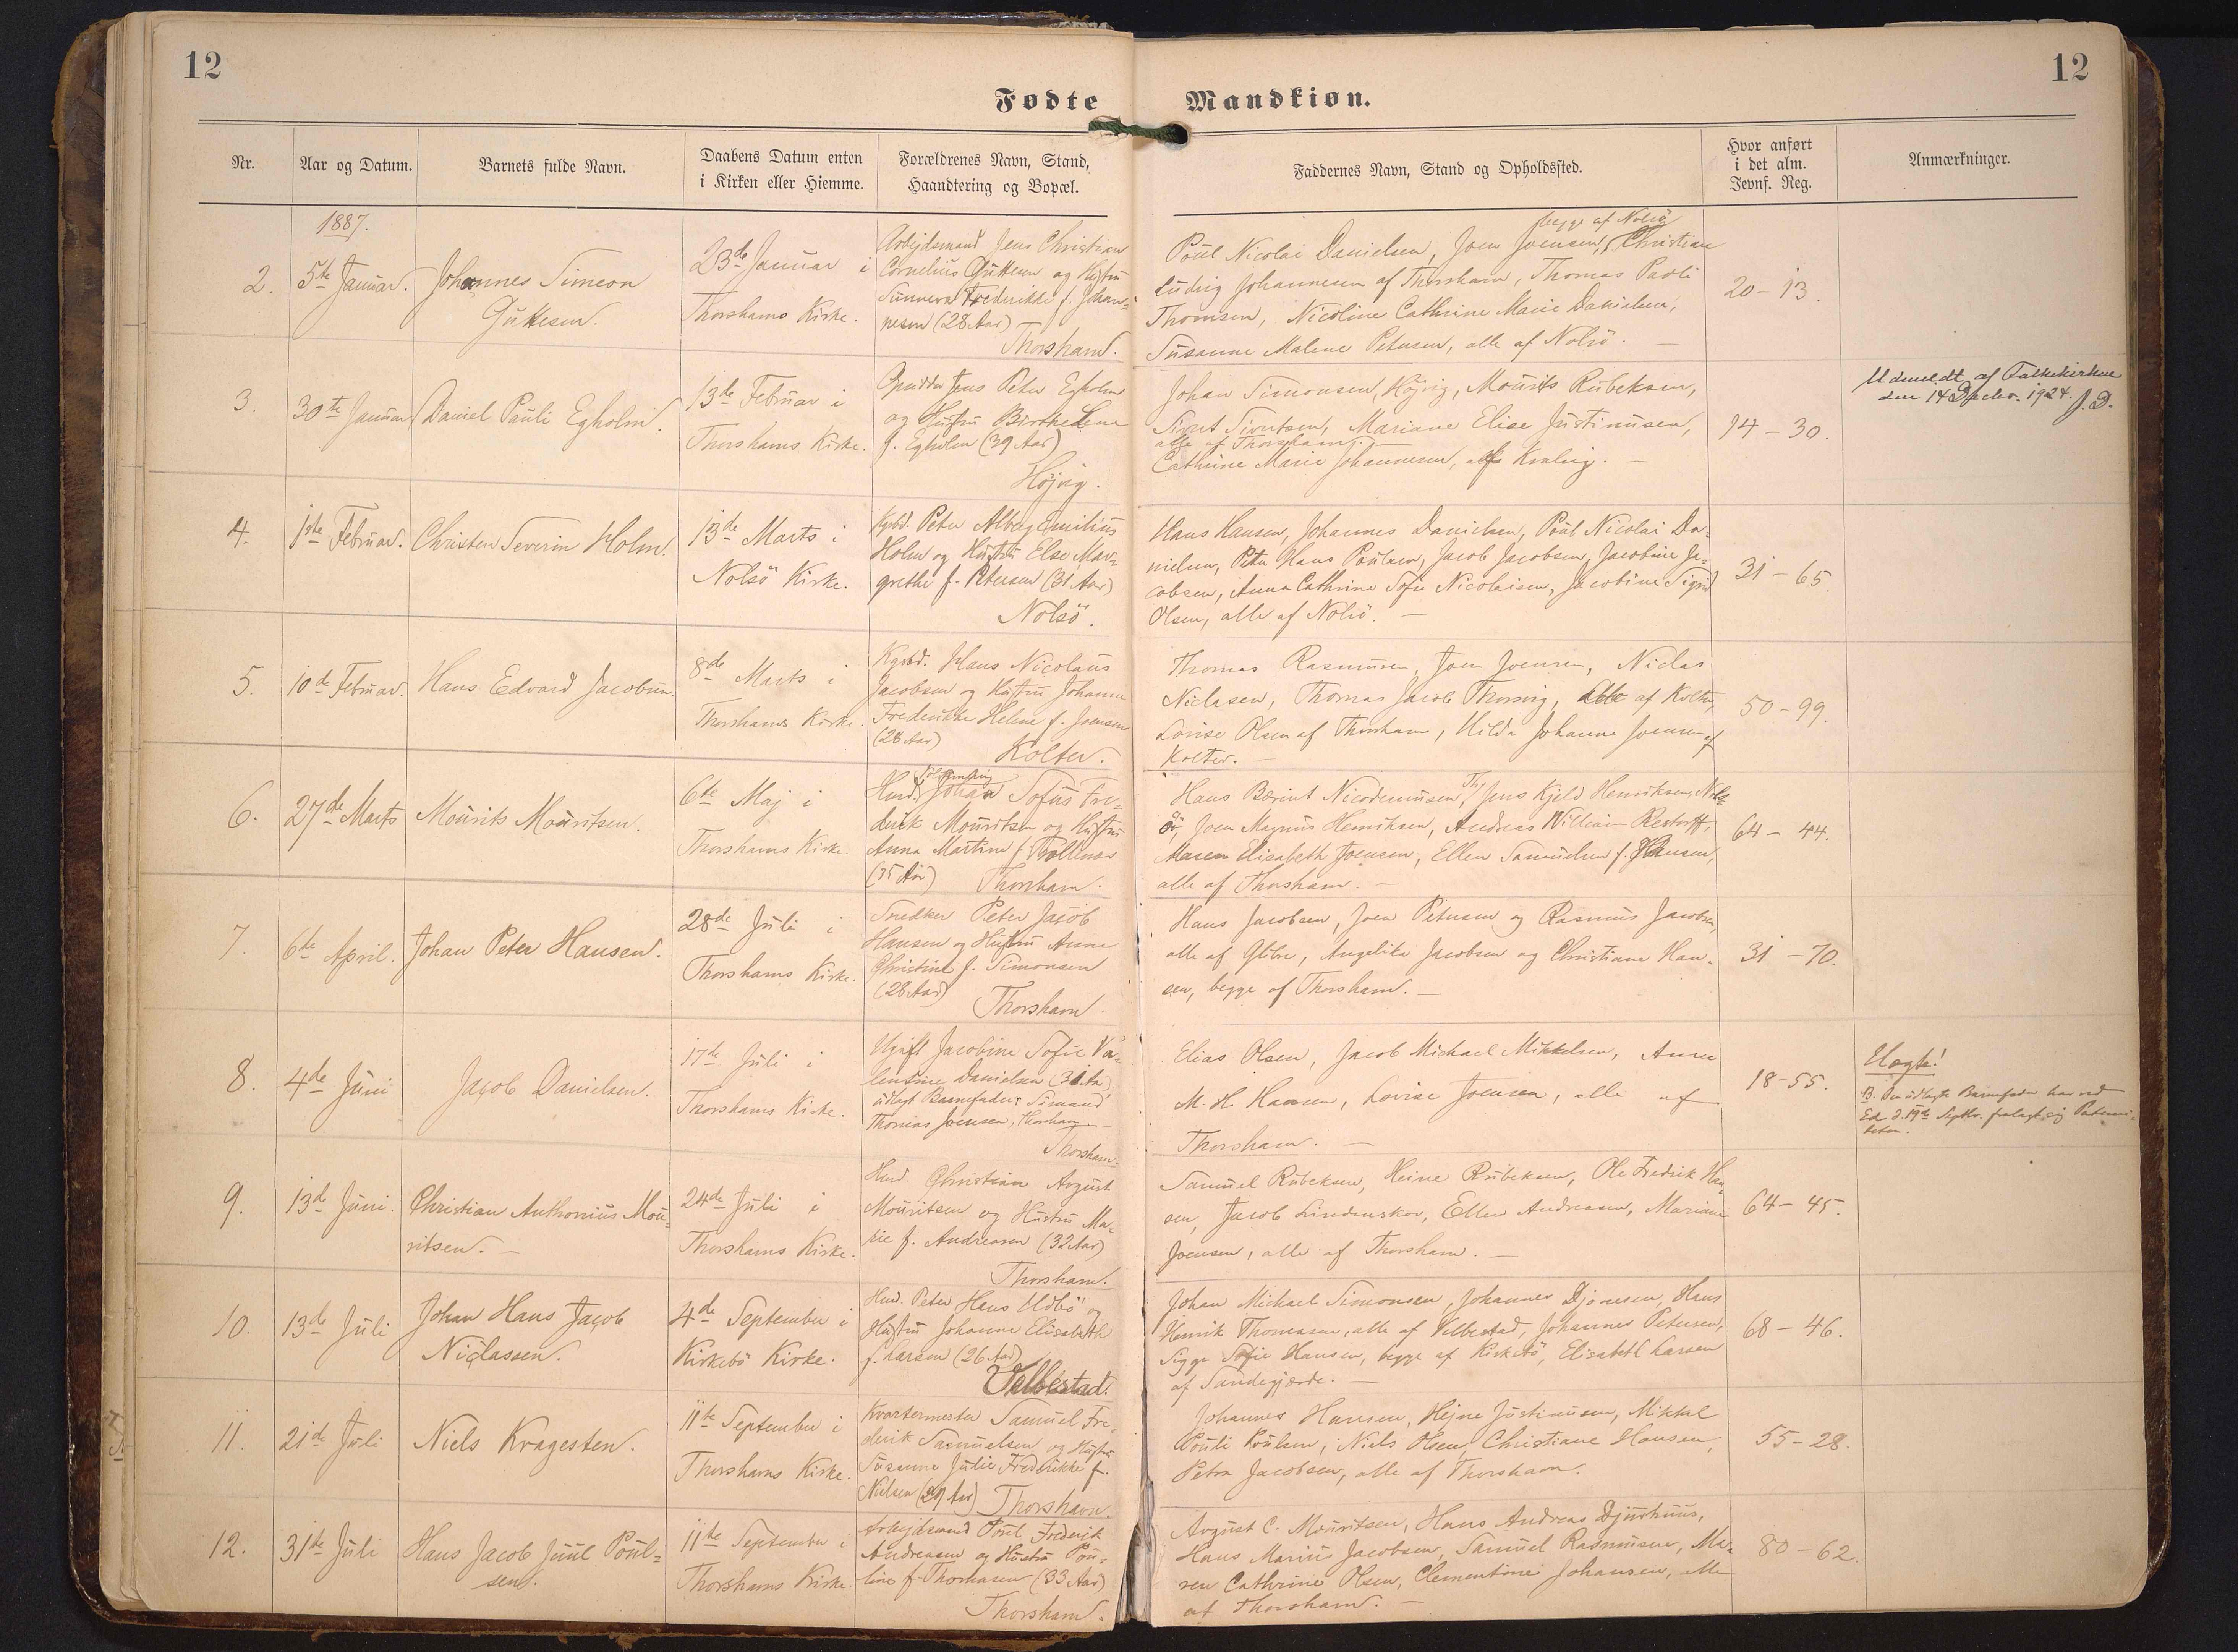 12
12
Fødte Mandkiøn.
Nr.
Aar og Datum.
Barnets fulde Navn.
Daabens Datum enten
i Kirken eller Hiemme.
Forældrenes Navn, Stand,
Haandtering og Bopæl.
Faddernes Navn, Stand og Opholdssted.
Hvor anført
i det alm.
Jevnf. Reg.
Anmærkninger.
1887.
2.
5te Januar.
Johannes Simeon
Guttesen.
23de Januar i
Thorshavns Kirke.
Arbejdsmand Jens Christian
Cornelius Guttesen og Hustru
Sunneva Frederikke f. Johan-
nesen (28 Aar)
Thorshavn.
begge af Nolsö
Poul Nicolai Danielsen, Joen Joensen, Christian
Ludvig Johannesen af Thorshavn, Thomas Pauli
Thomsen, Nicoline Cathrine Marie Danielsen,
Susanne Malene Petersen, alle af Nolsö.
20-13.
3.
30te Januar
Daniel Pauli Egholm.
13de Februar i
Thorshavns Kirke.
Jens Peter Egholm
og Hustru Birthe Lene
f. Egholm (39 Aar)
Højvig.
Johan Simonsen, Højvig, Mourits Rubeksen,
Sivert Sivertsen, Mariane Elise Justinusen,
alle af Thorshavn.
Cathrine Marie Johannesen, af Kvalvig.
14-30.
Udmeldt af Folkekirken
den 14 Decbr. 1924. J.D.
4.
1ste Februar.
Christen Severin Holm.
13de Marts i
Nolsö Kirke.
Kgsbd. Peter Alberg Emilius
Holm og Hustru Else Mar-
grethe f. Petersen (31 Aar)
Nolsö.
Hans Hansen, Johannes Danielsen, Poul Nicolai Da-
nielsen, Peter Hans Poulsen, Jacob Jacobsen, Jacobine Ja-
cobsen, Anna Cathrine Sofie Nicolaisen, Jacobine Sigrid
Olsen, alle af Nolsö.
31-65.
5.
10de Februar.
Hans Edvard Jacobsen.
8de Marts i
Thorshavns Kirke.
Kgsbd. Hans Nicolaus
Jacobsen og Hustru Johanne
Frederikke Helene f. Joensen
(28 Aar)
Kolter.
Thomas Rasmussen, Joen Joensen, Niclas
Niclasen, Thomas Jacob Thorsvig, alle af Kolter,
Lovise Olsen af Thorshavn, Hilda Johanna Joensen af
Kolter.
50-99.
6.
27de Marts
Mourits Mouritsen.
6te Maj i
Thorshavns Kirke.
Husd. Johan Sofus Fre-
derik Mouritsen og Hustru
Anna Martine f. Tröllnæs
(35 Aar)
Thorshavn.
Hans Berint Nicodemusen, Th., Jens Kjeld Henriksen, Nols-
ö, Joen Magnus Henriksen, Andreas William Restorff,
Maren Elisabeth Joensen, Ellen Samuelsen f. Hansen,
alle af Thorshavn.
64-44.
7.
6te April.
Johan Peter Hansen.
28de Juli i
Thorshavns Kirke.
Snedker Peter Jacob
Hansen og Hustru Anne
Christine f. Simonsen
(28 Aar)
Thorshavn
Hans Jacobsen, Joen Petersen og Rasmus Jacobsen,
alle af Glibre, Angelika Jacobsen og Christiane Han-
sen, begge af Thorshavn.
31-70.
8.
4de Juni
Jacob Danielsen.
17de Juli i
Thorshavns Kirke.
Ugift Jacobine Sofie Va-
lentine Danielsen (31 Aar),
udlagt Barnefader: Sömand
Thomas Joensen, Thorshavn
Thorshavn.
Elias Olsen, Jacob Michael Mikkelsen, Anna
M. H. Hansen, Lovise Joensen, alle af
Thorshavn.
18-55.
Uægte!
B. Den udlagte Barnefader har ved
Ed d. 19de Septbr. fralagt sig Paterni-
teten.
9.
13de Juni.
Christian Anthonius Mou-
ritsen.
24de Juli i
Thorshavns Kirke.
Husd. Christian August
Mouritsen og Hustru Ma-
rie f. Andreasen (32 Aar)
Thorshavn.
Samuel Rubeksen, Heine Rubeksen, Ole Fredrik Han-
sen, Jacob Lindenskov, Ellen Andreasen, Mariane
Joensen, alle af Thorshavn.
64-45.
10.
13de Juli
Johan Hans Jacob
Niclassen.
4de September i
Kirkebö Kirke.
Husd. Peter Hans Udbö og
Hustru Johanne Elisabeth
f. Larsen (26 Aar)
Velbestad.
Johan Michael Simonsen, Johannes Djonesen, Hans
Henrik Thomasen, alle af Velbestad, Johannes Petersen,
Sigga Sofie Hansen, begge af Kirkebö, Elisabeth Larsen
af Sandegjærde.
68-46.
11.
21de Juli
Niels Kragesten.
11te September i
Thorshavns Kirke.
Kvartermester Samuel Fre-
derik Samuelsen og Hustru
Susanne Julie Frederikke f.
Nielsen (29 Aar)
Thorshavn.
Johannes Hansen, Hejne Justinusen, Mikkal
Pouli Poulsen, Niels Olsen, Christiane Hansen,
Petra Jacobsen, alle af Thorshavn.
55-28.
12.
31te Juli
Hans Jacob Juul Poul-
sen.
11te September i
Thorshavns Kirke.
Arbejdsmand Poul Frederik
Andreasen og Hustru Pou-
line f. Thomasen (33 Aar)
Thorshavn.
August C. Mouritsen, Hans Andreas Djurhuus,
Hans Marius Jacobsen, Samuel Rasmusen, Ma-
ren Cathrine Olsen, Clementine Johansen, alle
af Thorshavn.
80-62.